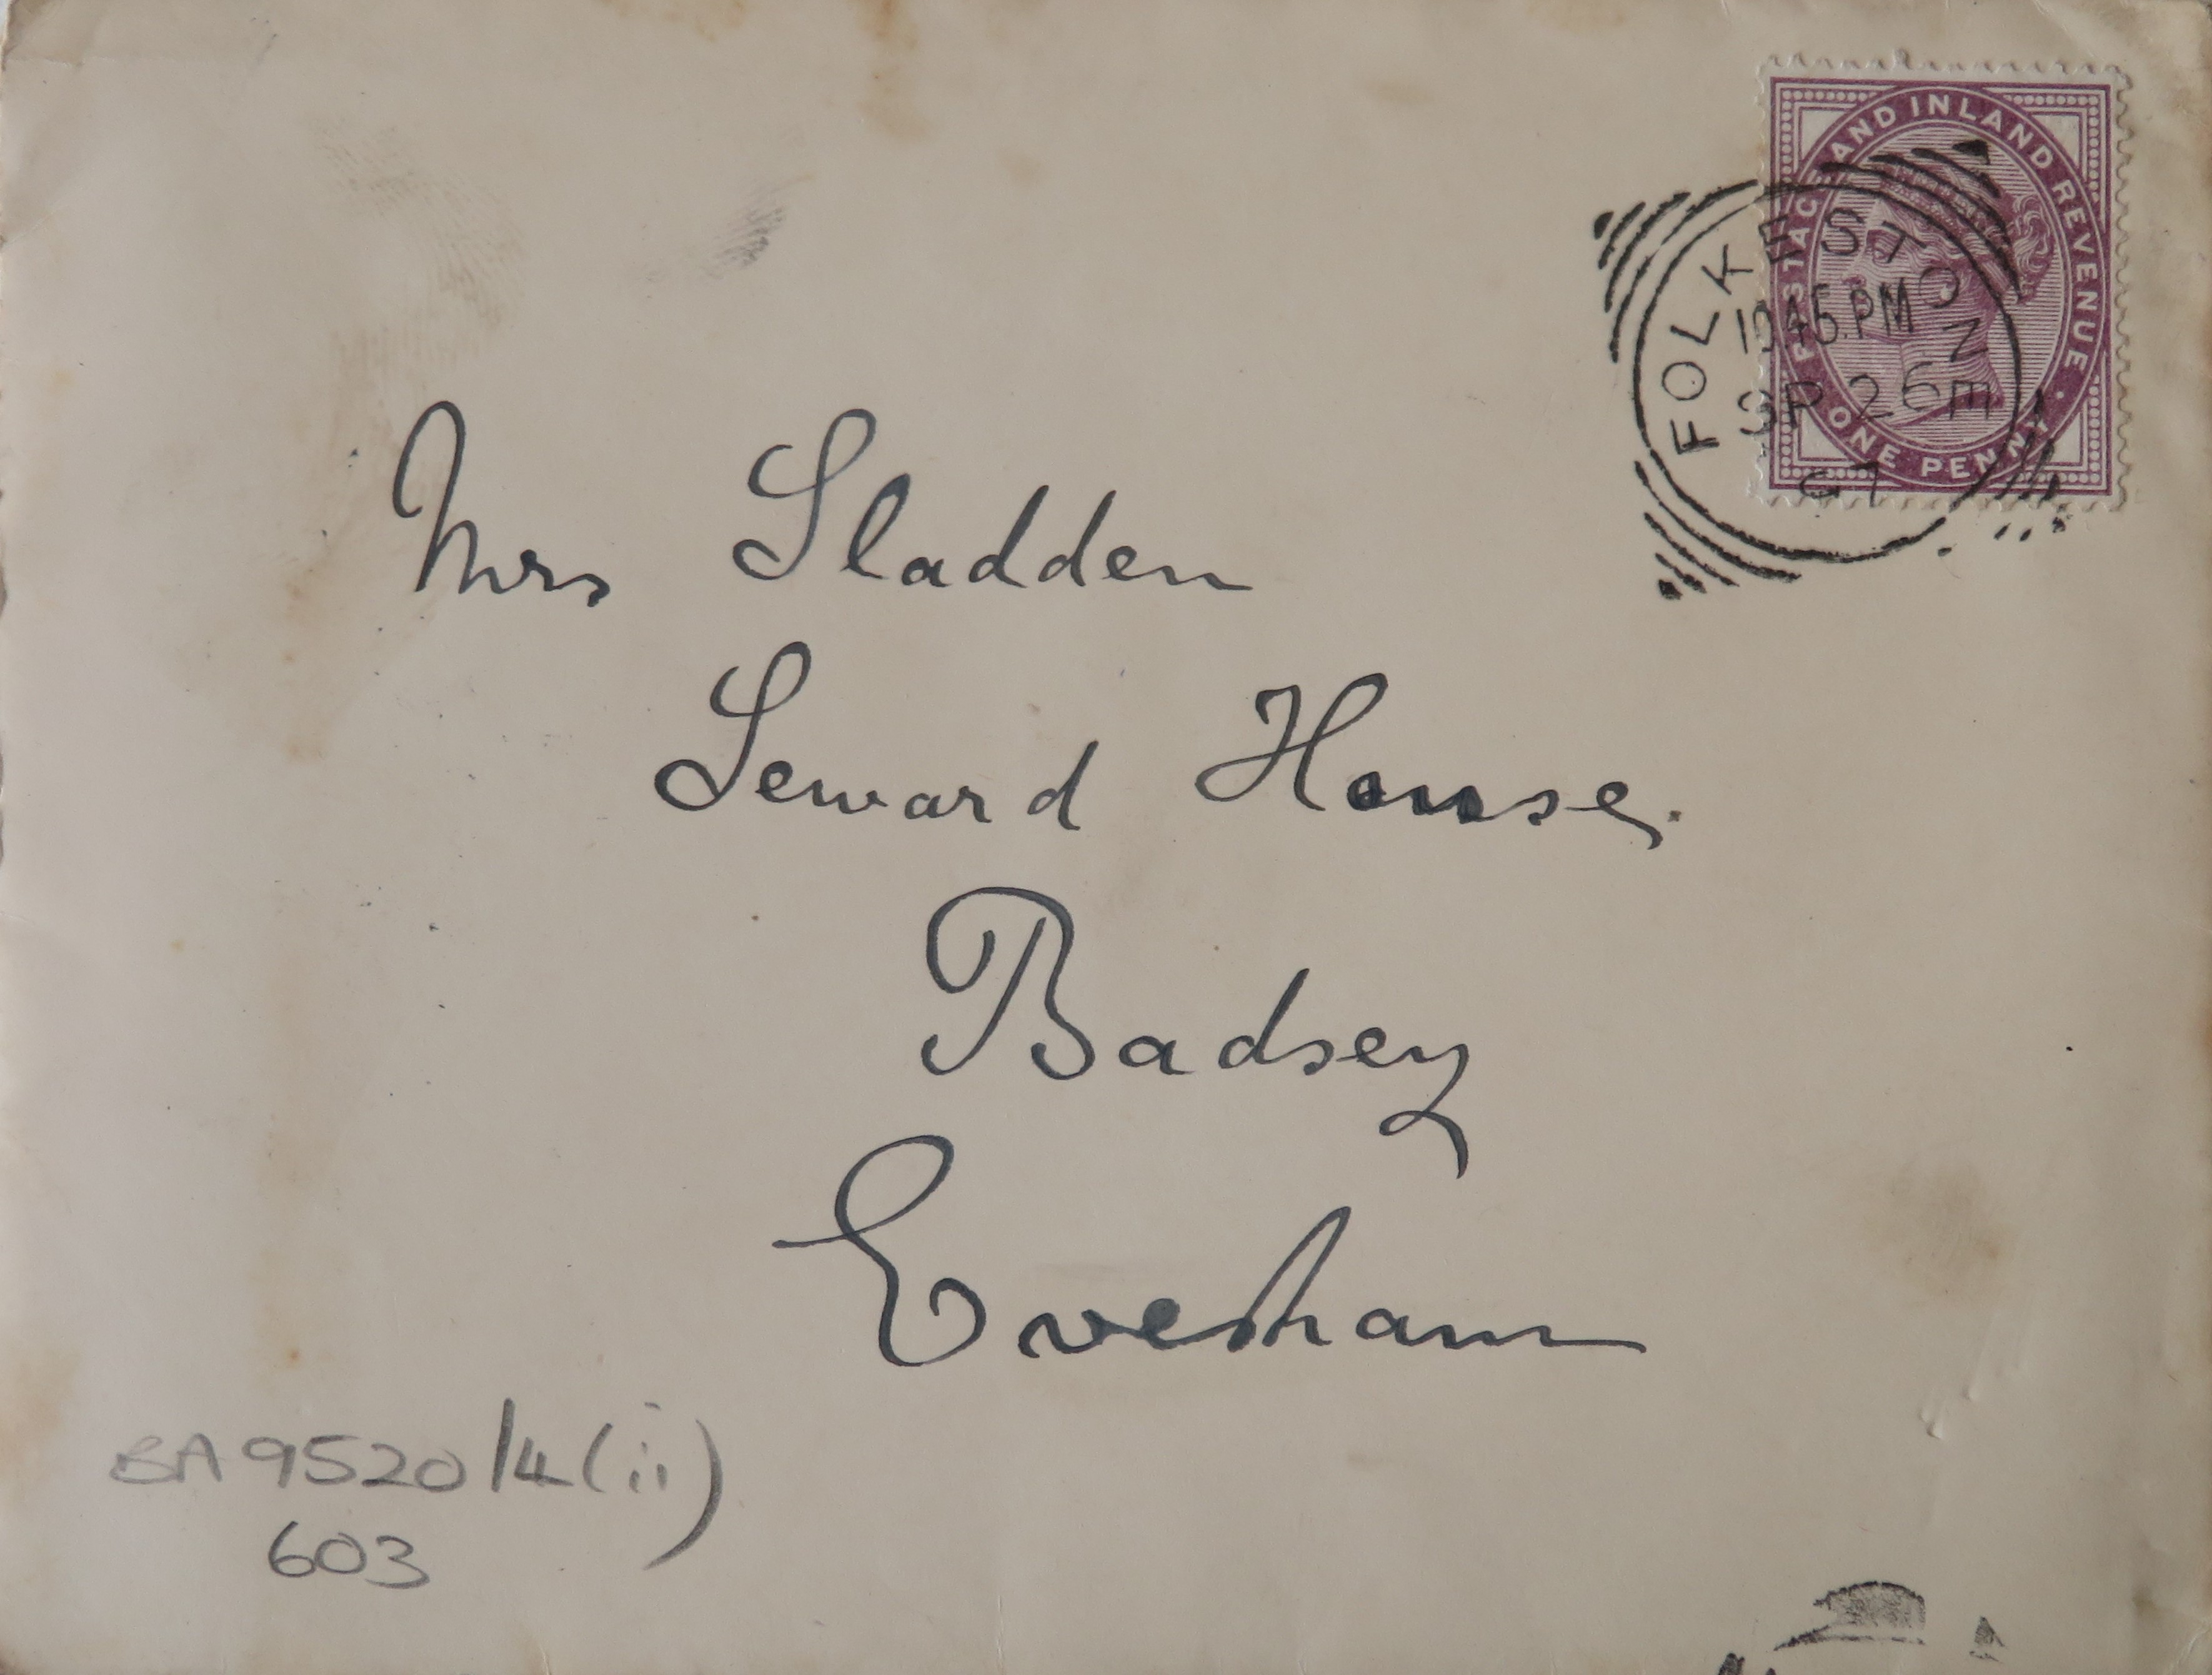 POSTAGE AND INLAND REVENUE.
ONE PENNY
FOLKESTON
10.45.PM
SP 26
97
Mrs Sladden
Seward House.
Badsey
Evesham
BA 9520/4(ii)
603